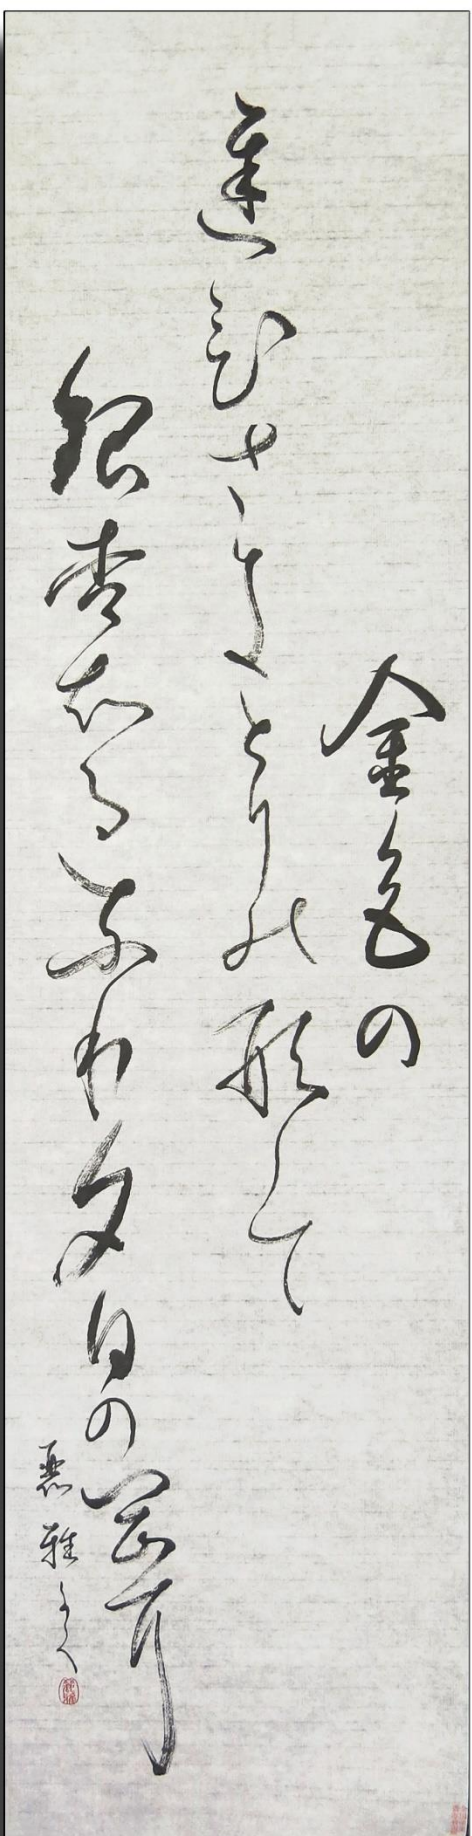 金色の
ちひさき とりの形して
銀杏ちるなり夕日の岡に